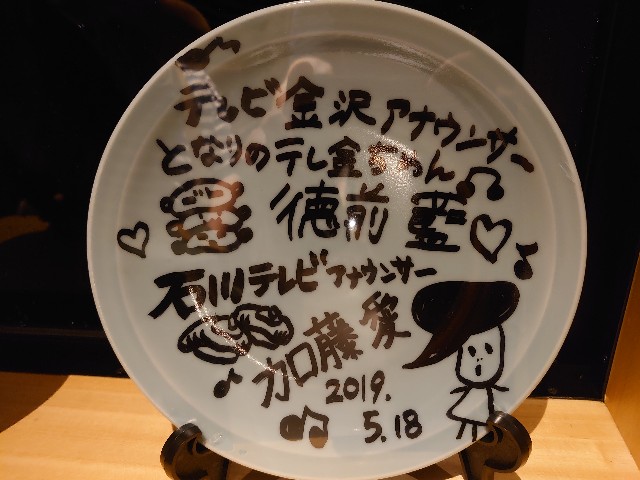 テレビ金沢アナウンサー
となりのテレ金ちゃん
徳前 藍
石川テレビアナウンサー
加藤 愛
2019.
5.18